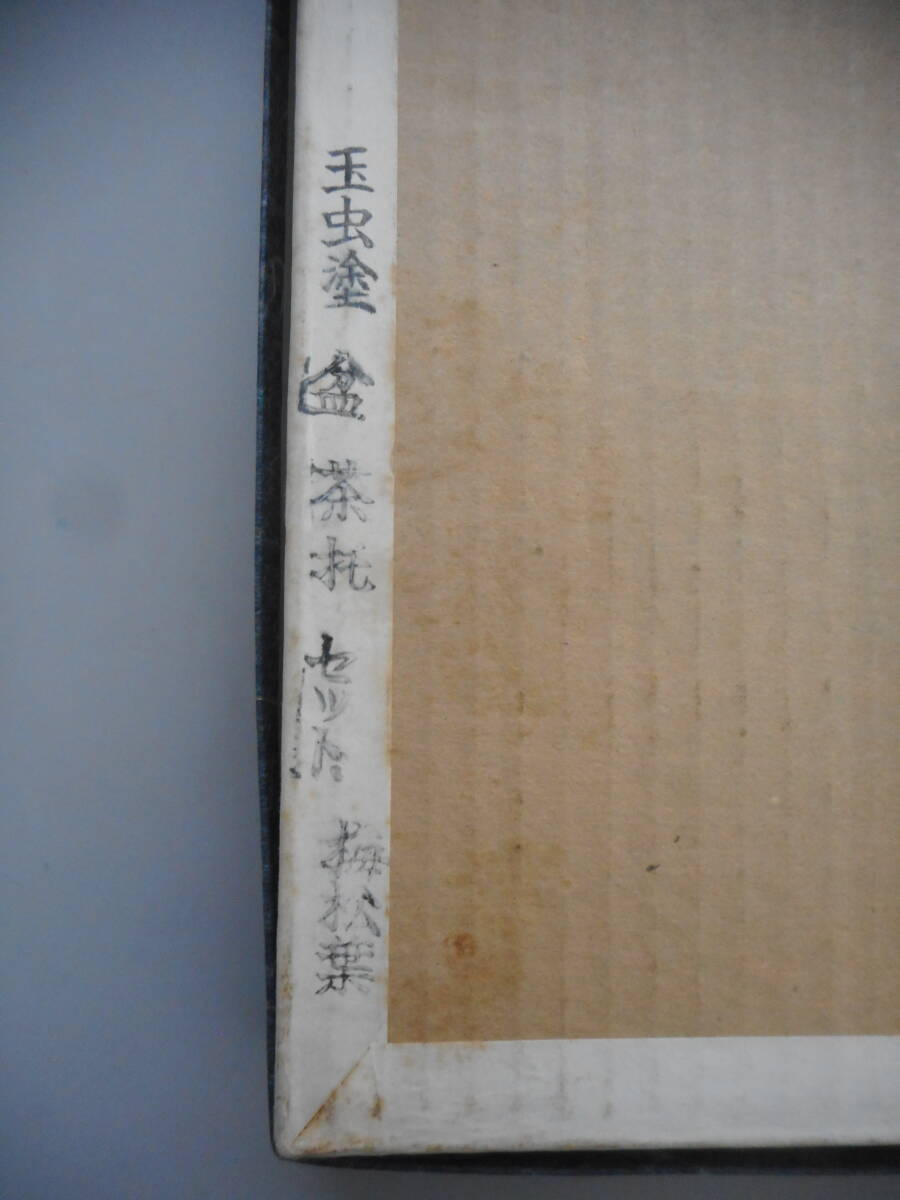 玉虫塗 盆 茶托 セット 梅松葉